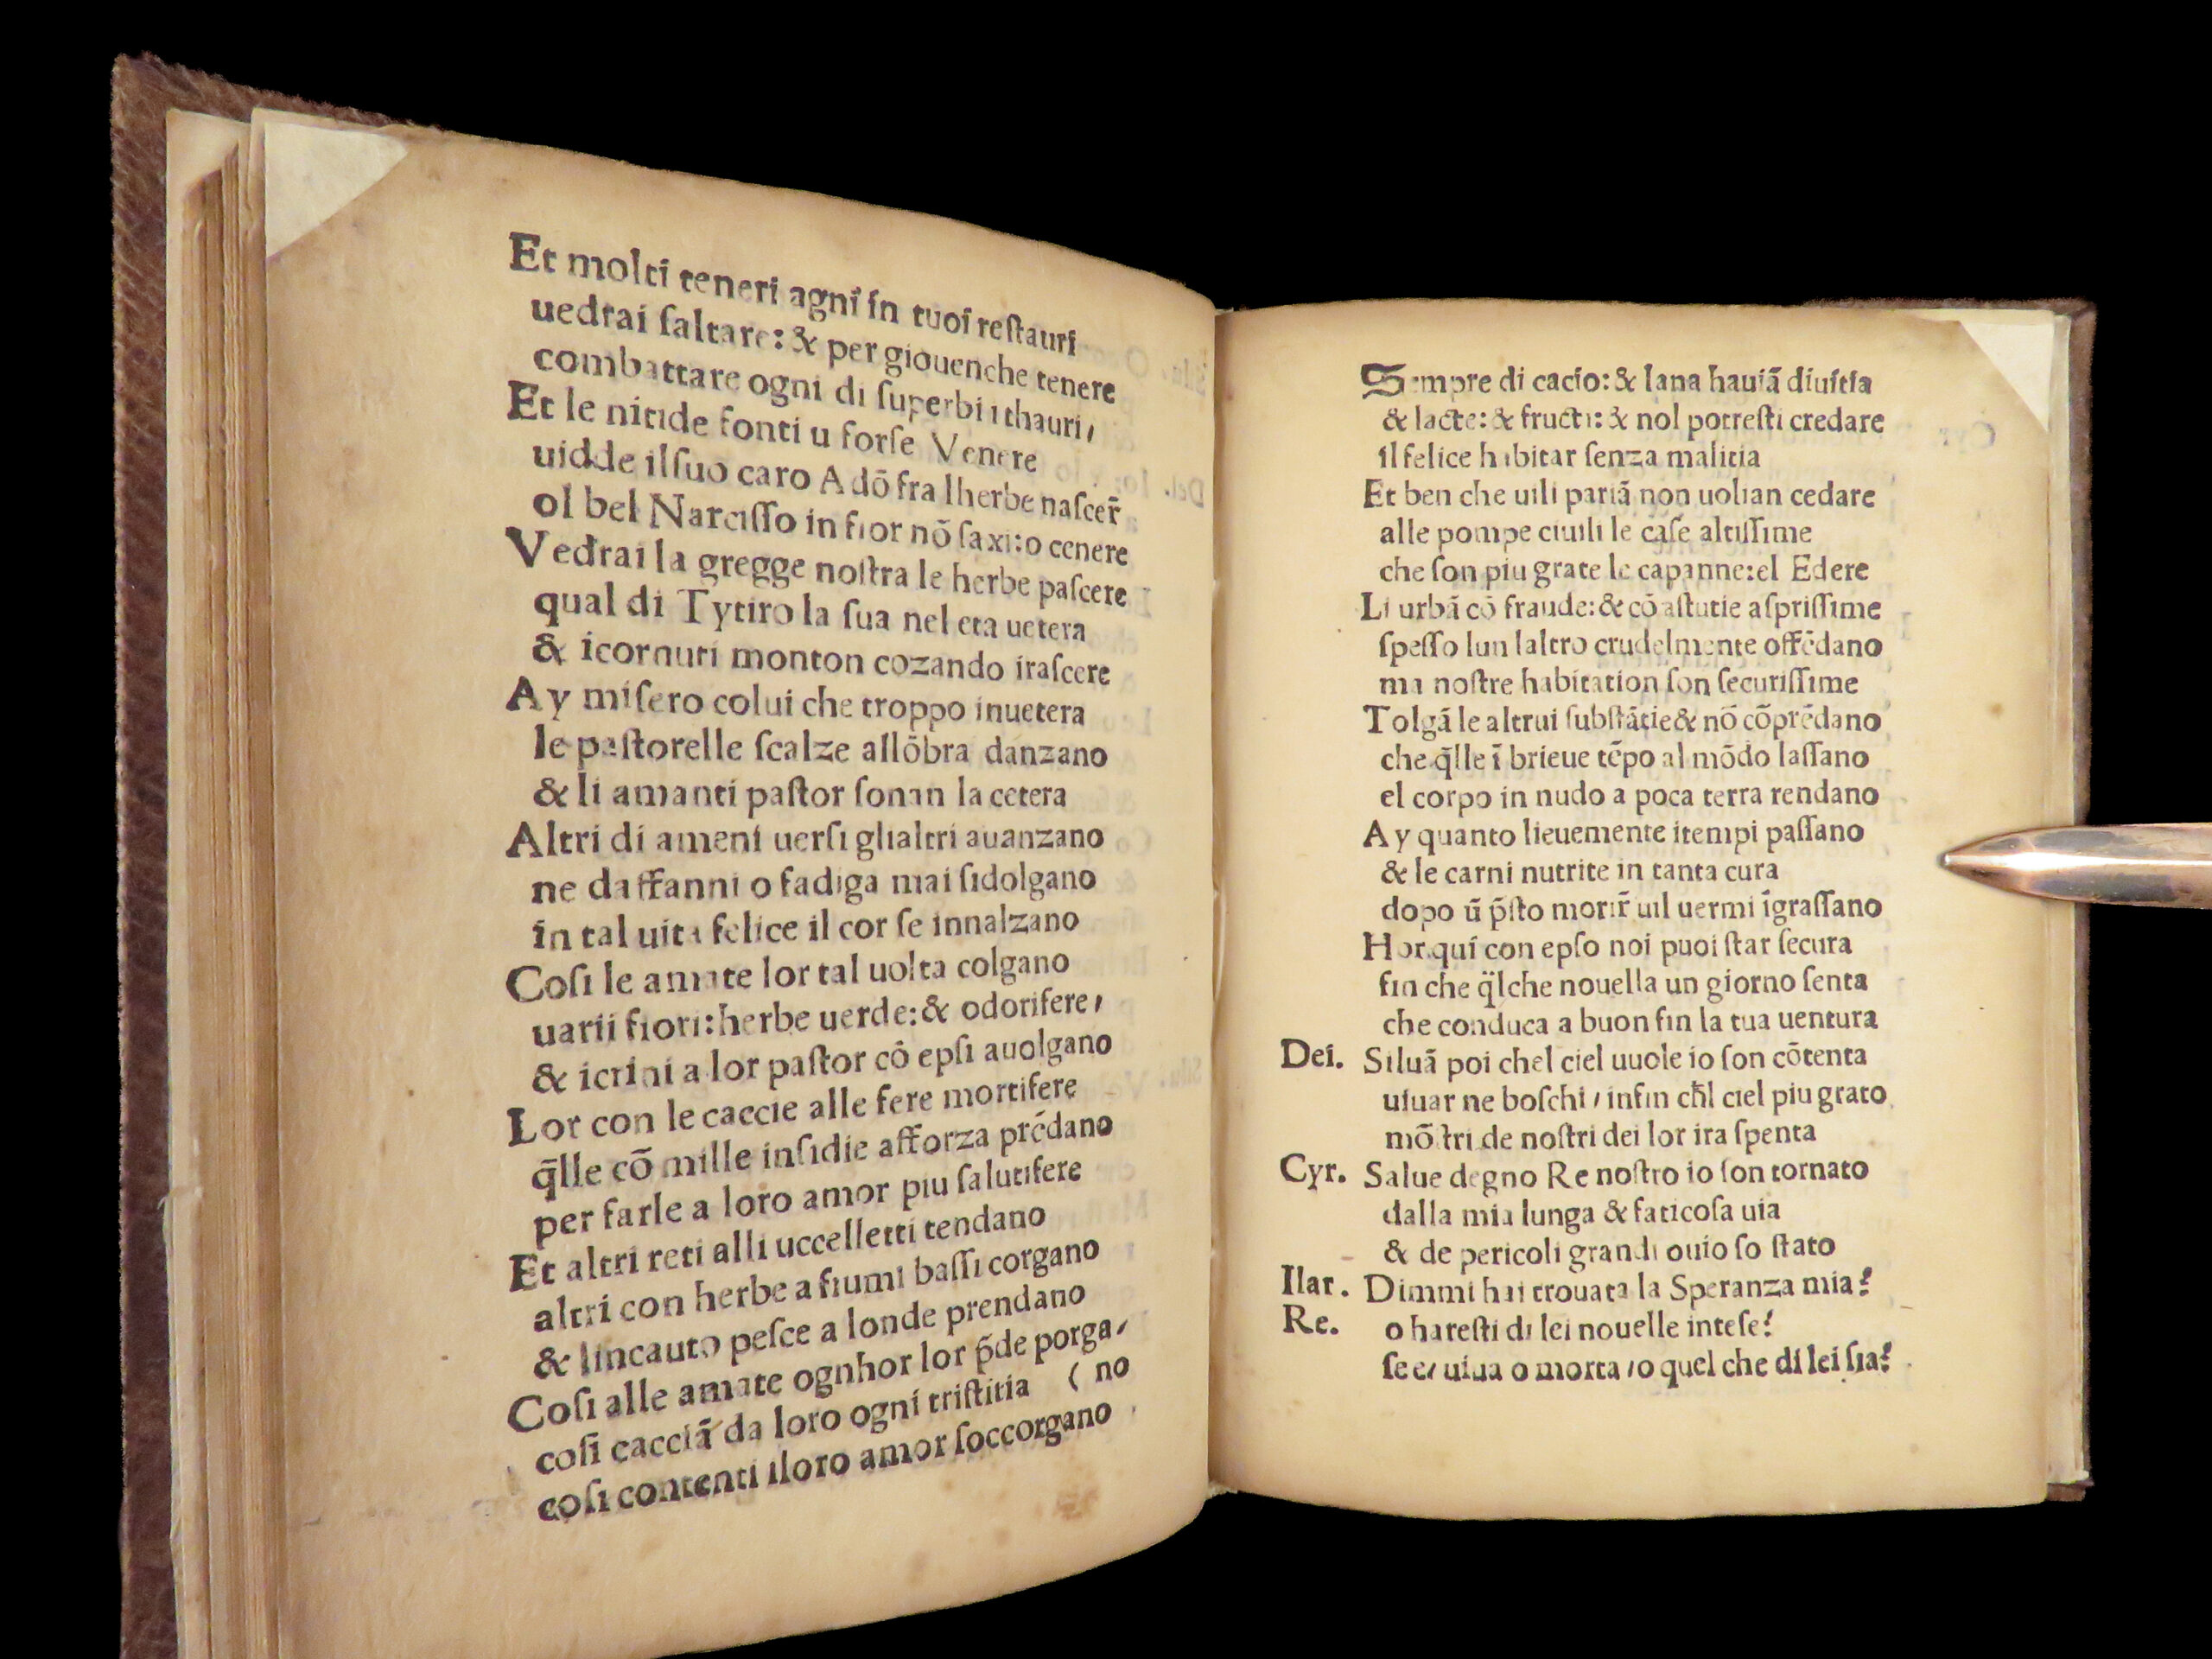 Et molti teneri agni in tuoi reſtauri
uedrai ſaltare: & per giouenche tenere
combattare ogni di ſuperbi i thauri,
Et le nitide fonti u forſe Venere
uidde ilſuo caro Adõ fra lherbe naſcer̃
ol bel Narciſſo in fior nõ ſaxi:o cenere
Vedrai la gregge noſtra le herbe paſcere
qual di Tytiro la ſua nel eta uetera
& icornuti monton cozando iraſcere
Ay miſero colui che troppo inuetera
le paſtorelle ſcalze allõbra danzano
& li amanti paſtor ſonan la cetera
Altri di ameni uerſi glialtri auanzano
ne daffanni o fadiga mai ſidolgano
in tal uita felice il cor ſe innalzano
Coſi le amate lor tal uolta colgano
uarii fiori:herbe uerde:& odorifere,
& icrini a lor paſtor cõ epſi auolgano
Lor con le caccie alle fere mortifere
q̃lle cõ mille inſidie afforza prẽdano
per farle a loro amor piu ſalutifere
Et altri reti alli uccelletti tendano
altri con herbe a fiumi baſſi corgano
& lincauto peſce a londe prendano
Coſi alle amate ognhor lor p̃de porga,
coſi cacciã da loro ogni triſtitia ( no
coſi contenti iloro amor ſoccorgano
Sempre di cacio:& lana hauiã diuitia
& lacte:& fructi:& nol potreſti credare
il felice habitar ſenza malitia
Et ben che uili pariã non uolian cedare
alle pompe ciuili le caſe altiſſime
che ſon piu grate le capanne:el Edere
Li urbã cõ fraude:& cõ aſtutie aſpriſſime
ſpeſſo lun laltro crudelmente offẽdano
ma noſtre habitation ſon ſecuriſſime
Tolgã le altrui ſubſtãtie& nõ cõprẽdano
che q̃lle ĩ brieue tẽpo al mõdo laſſano
el corpo in nudo a poca terra rendano
Ay quanto lieuemente itempi paſſano
& le carni nutrite in tanta cura
dopo ũ p̃ſto morir̃ uil uermi ĩgraſſano
Hor qui con epſo noi puoi ſtar ſecura
fin che q̃lche nouella un giorno ſenta
che conduca a buon fin la tua uentura
Dei. Siluã poi chel ciel uuole io ſon cõtenta
uiuar ne boſchi, infin ch̃l ciel piu grato
mõſtri de noſtri dei lor ira ſpenta
Cyr. Salue degno Re noſtro io ſon tornato
dalla mia lunga & faticoſa uia
& de pericoli grandi ouio ſo ſtato
Ilar. Dimmi hai trouata la Speranza mia?
Re. o hareſti di lei nouelle inteſe?
ſe e, uiua o morta,o quel che di lei ſia?